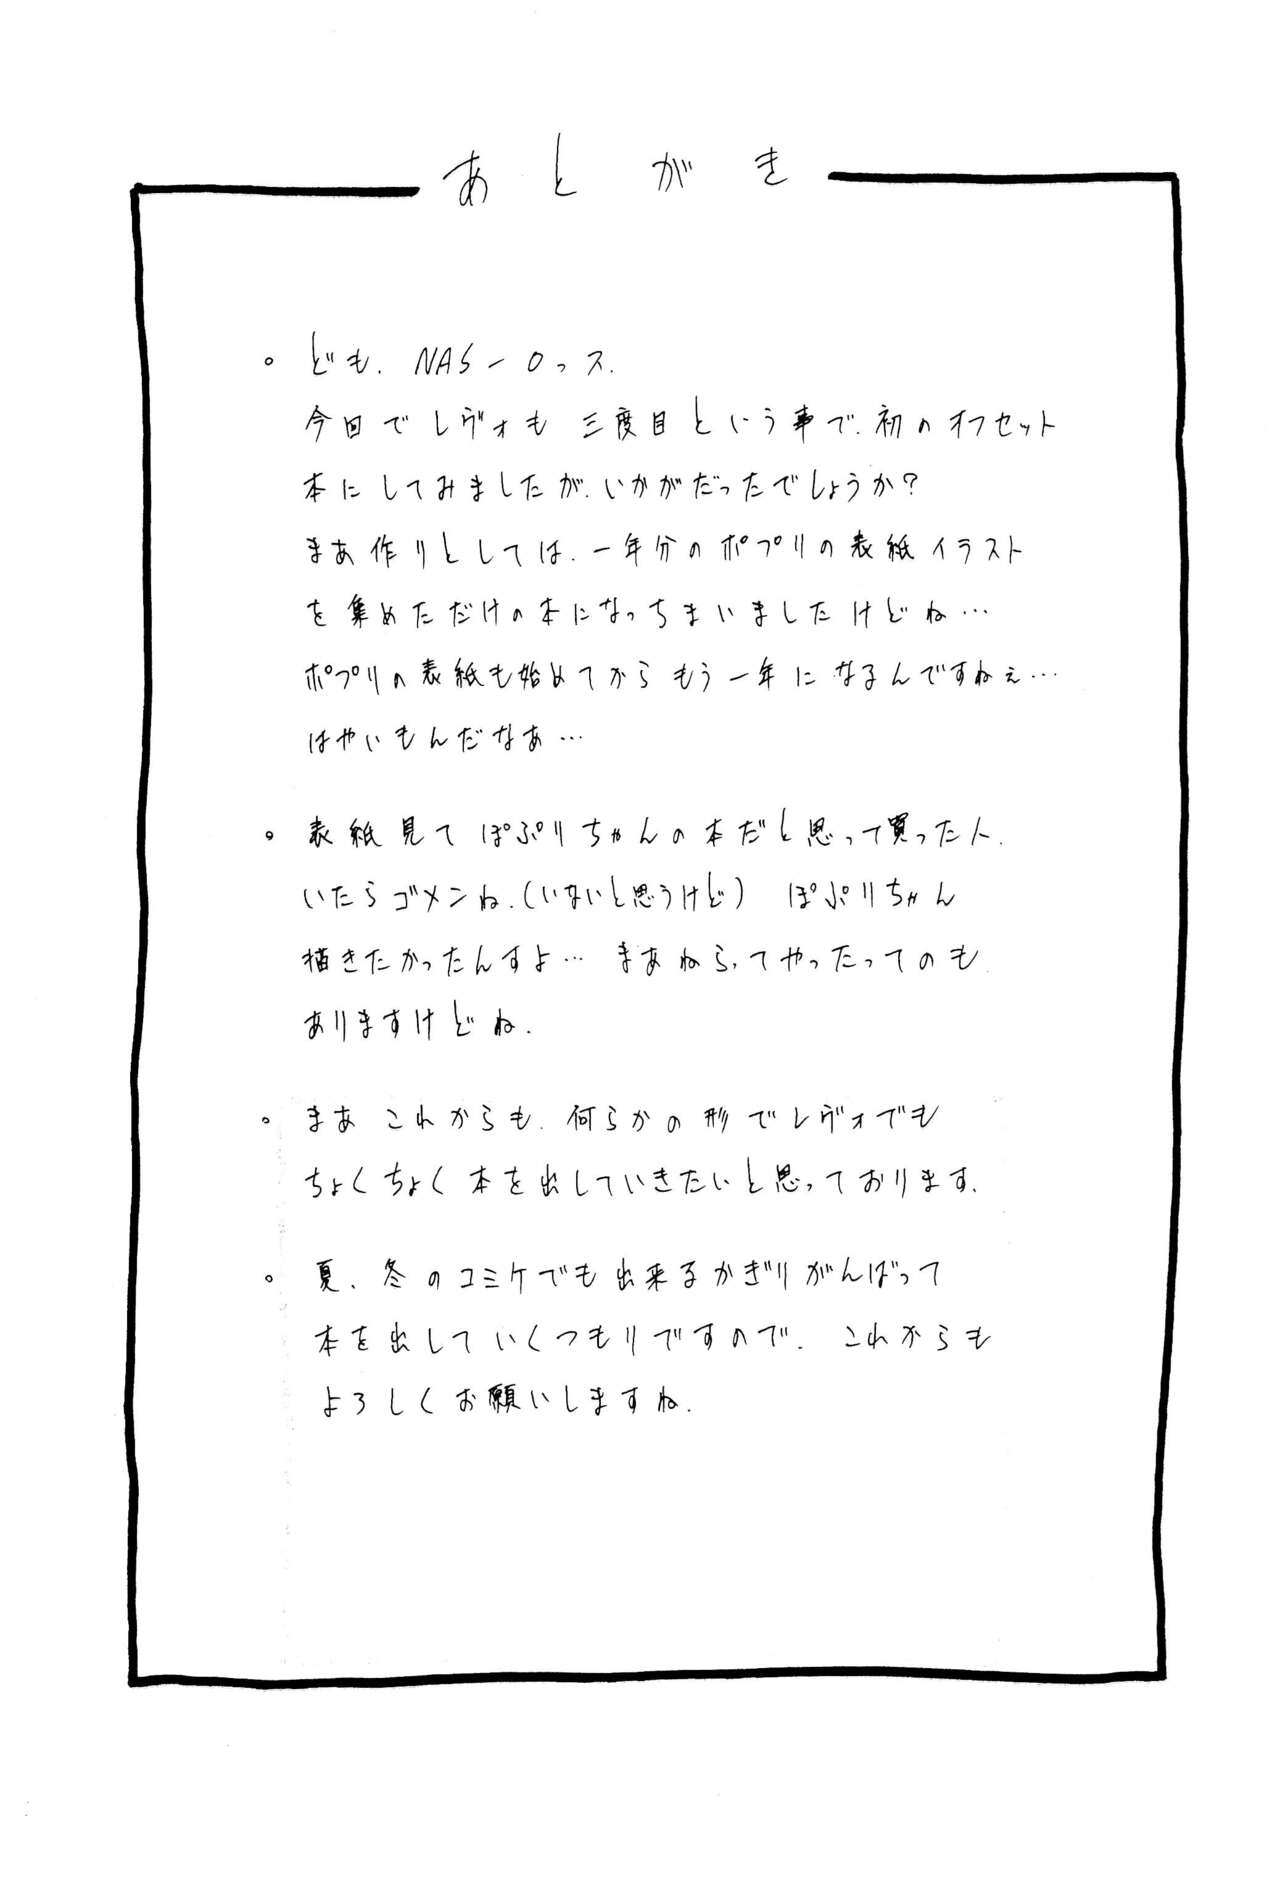 あとがき
。ども、NAS-Oっス.
今回でレヴォも三度目という事で、初のオフセット
本にしてみましたが、いかがだったでしょうか?
まあ作りとしては、一年分のポプリの表紙イラスト
を集めただけの本になっちまいましたけどね…
ポプリの表紙も始めてからもう一年になるんですねぇ…
はやいもんだなあ…
。表紙見てぽぷりちゃんの本だと思って買った人、
いたらゴメンね、(いないと思うけど) ぽぷりちゃん
描きたかったんすよ… まあねらってやったってのも
ありますけどね.
。まあ これからも、何らかの形でレヴォでも
ちょくちょく本を出していきたいと思っております.
。夏、冬のコミケでも出来るかぎりがんばって
本を出していくつもりですので、これからも
よろしくお願いしますね.